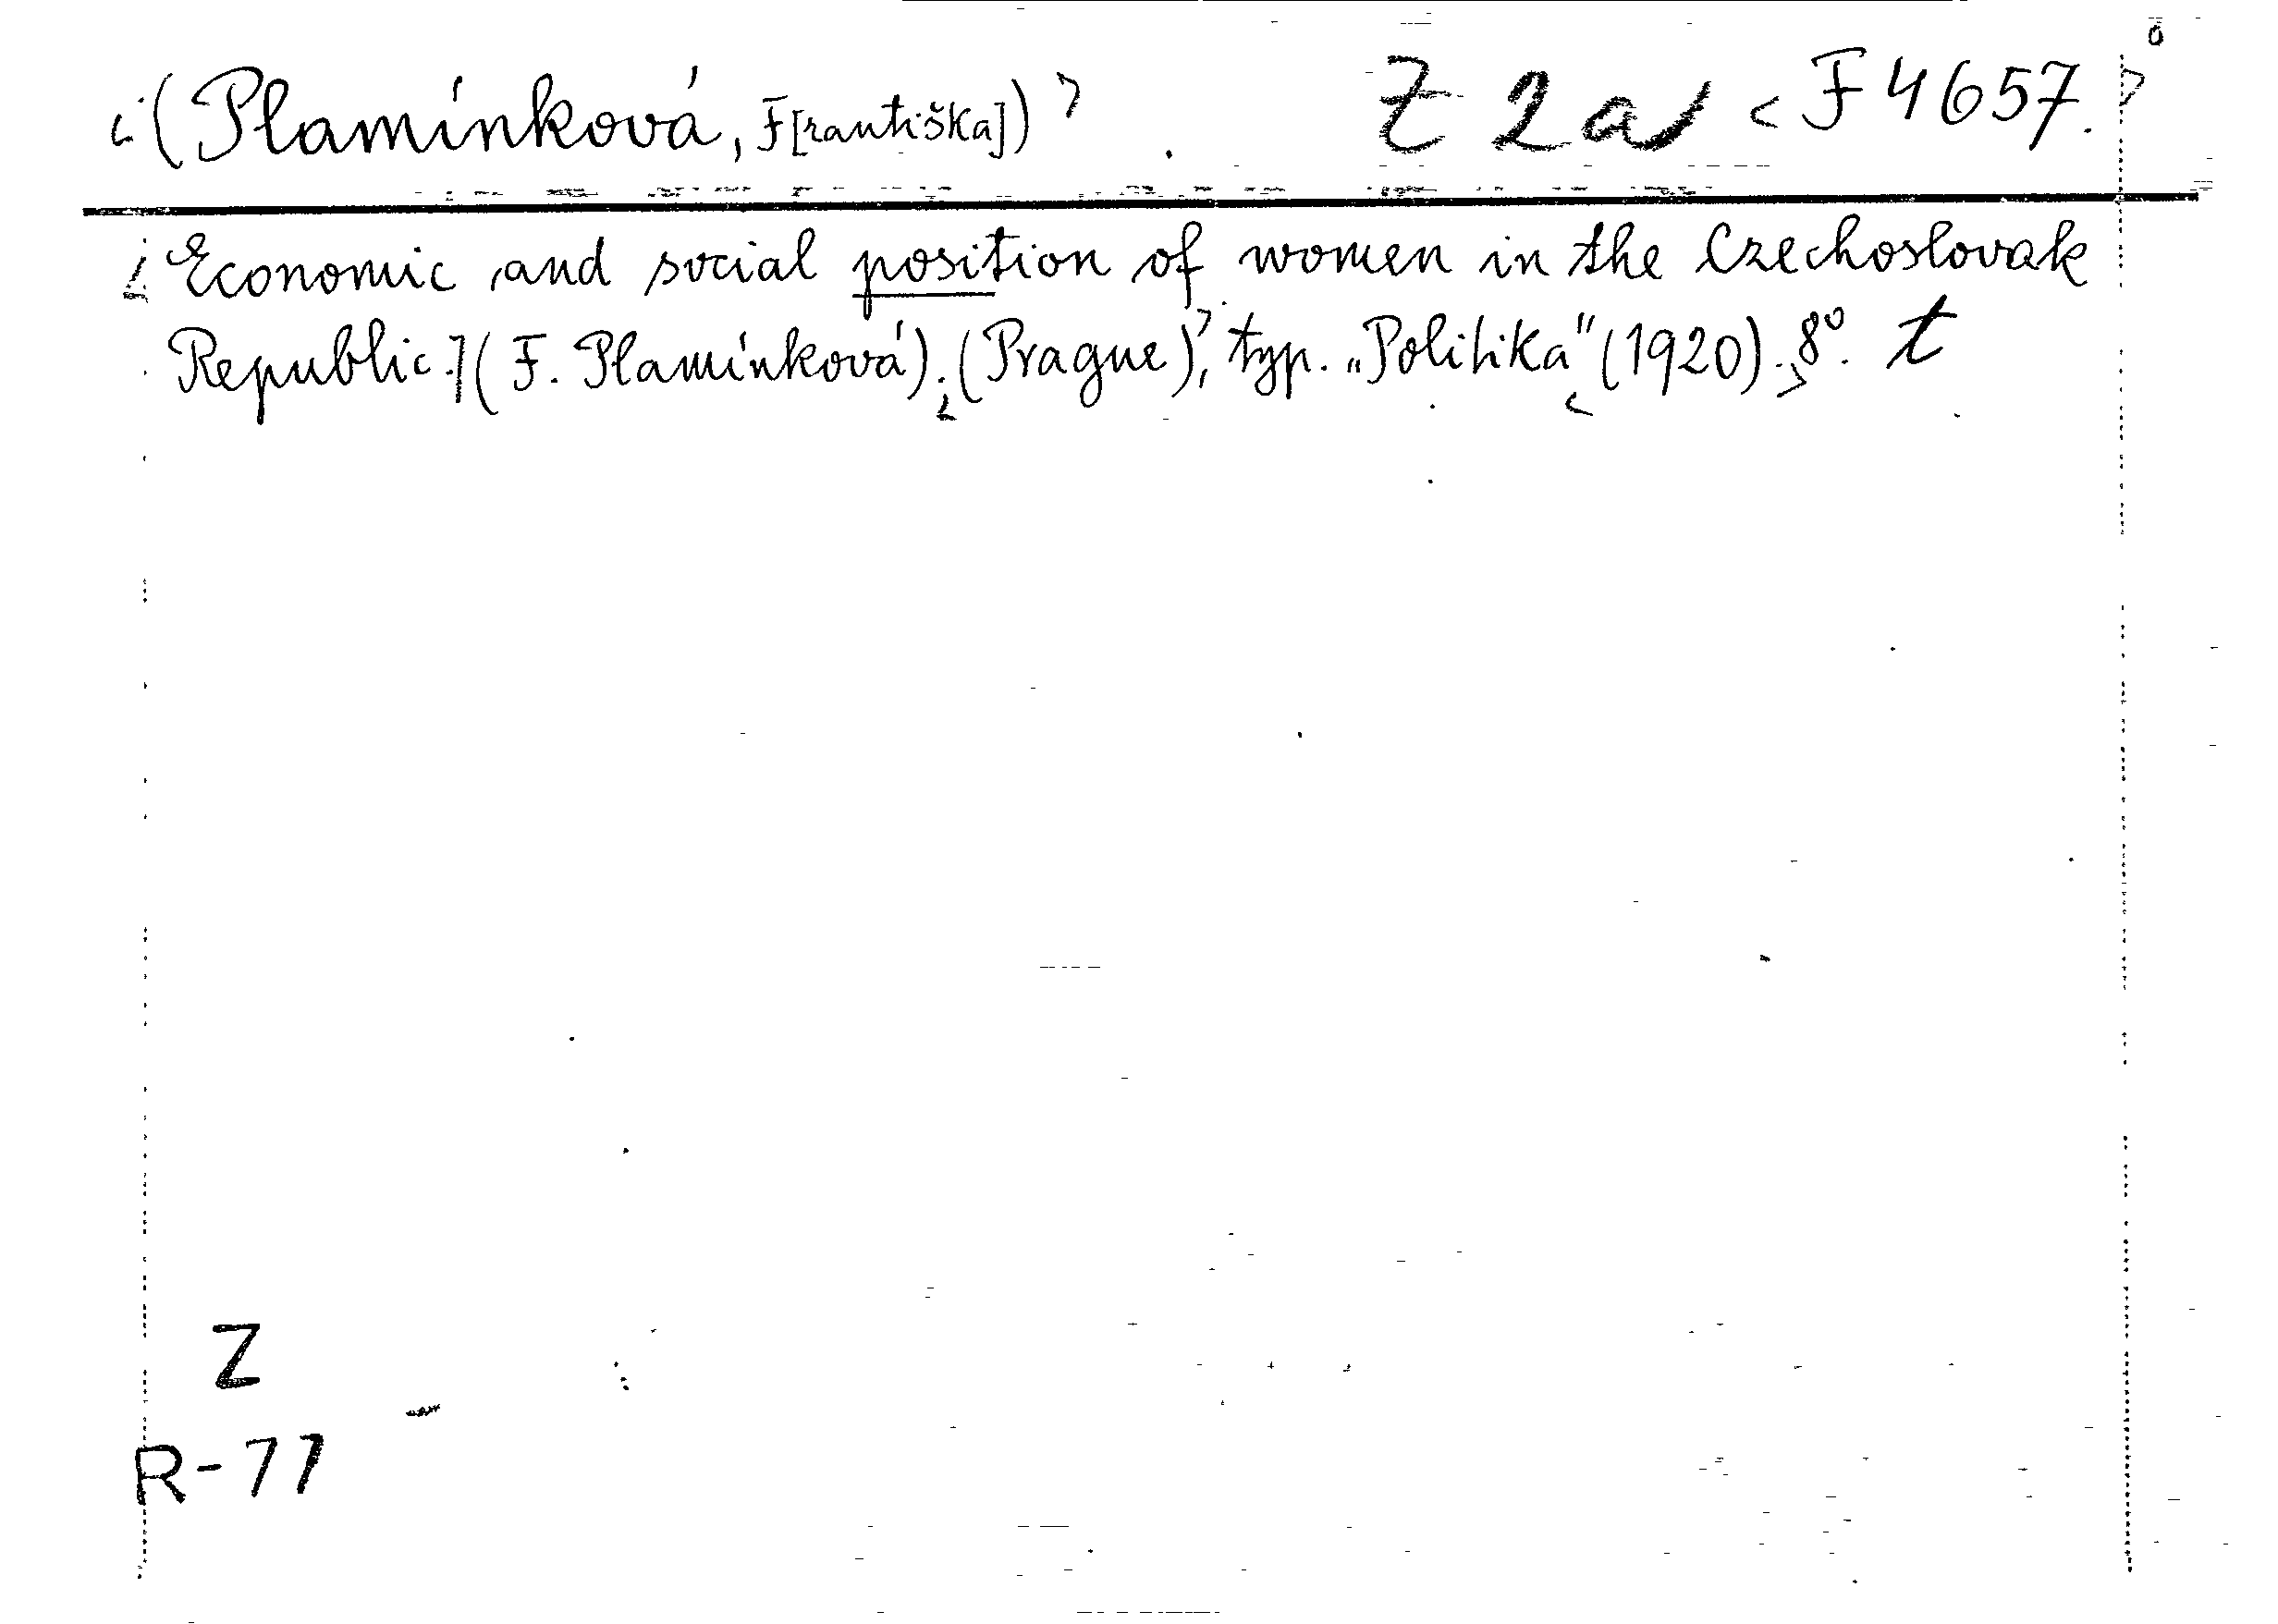 <(Plamínková, F[rantiška])> Z 2a <F 4657.>
<Economic and social position of women in the Czechoslovak
Republic.](F. Plamínková).<(Prague)>, typ. „Politika" <(1920).> 8°. t
Z
R-77